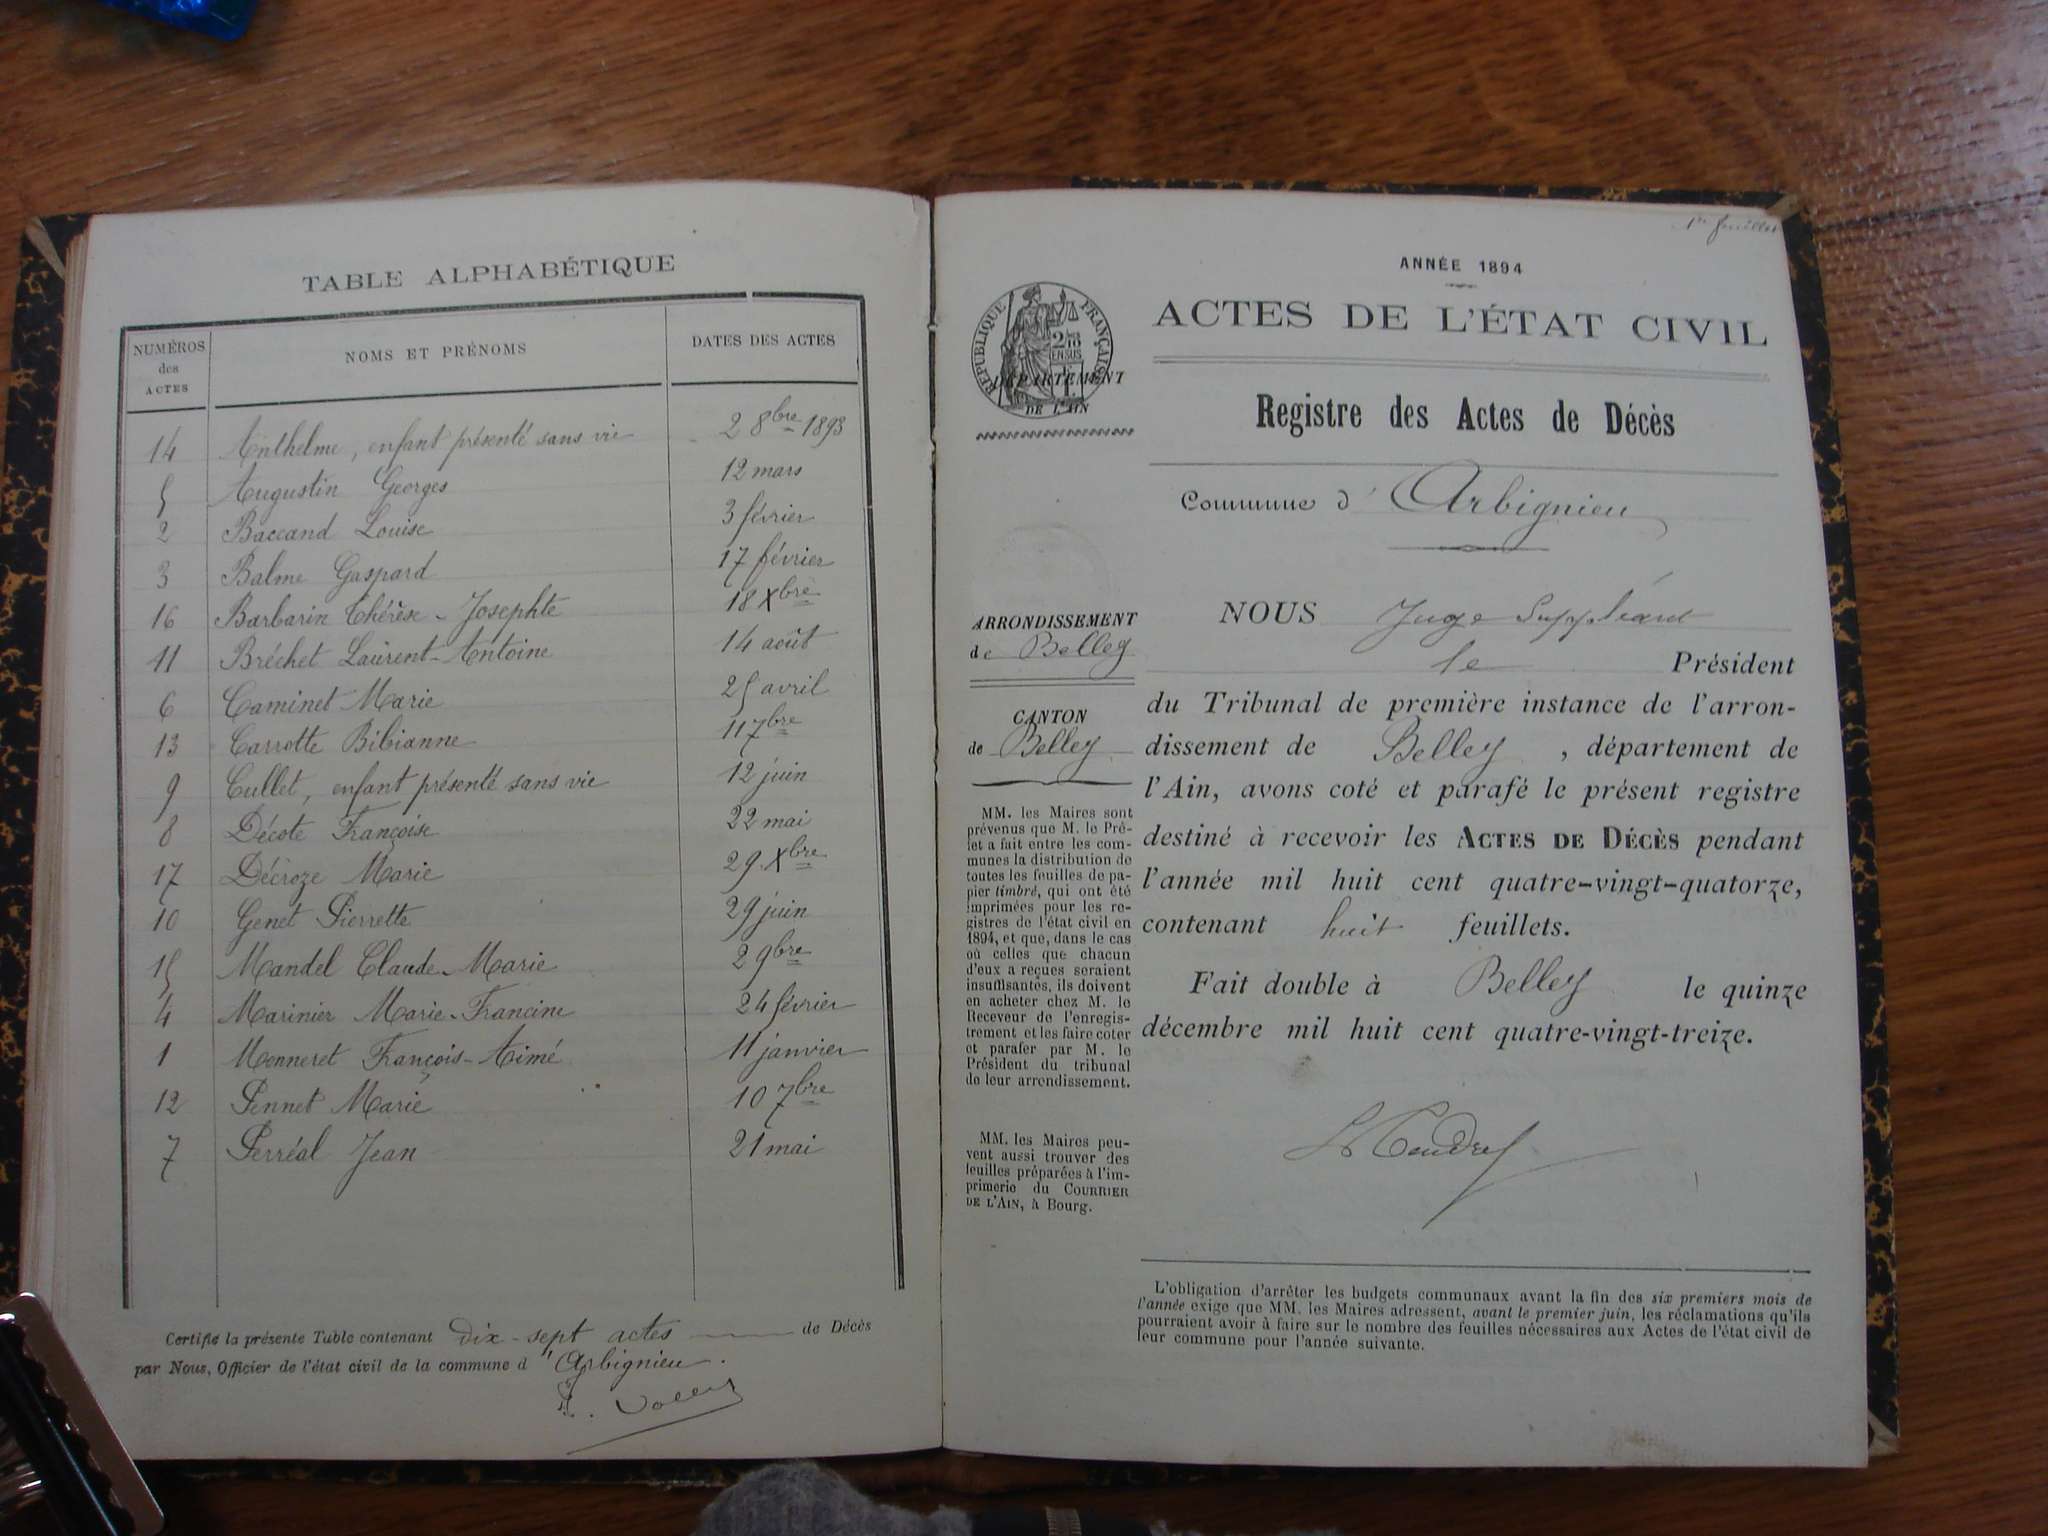 TABLE ALPHABÉTIQUE
NUMÉROS des ACTES NOMS ET PRÉNOMS DATES DES ACTES
14 Anthelme, enfant présenté sans vie 2 8bre 1893
5 Augustin Georges 12 mars
2 Baccand Louise 3 février
3 Balme Gaspard 17 février
16 Barbarin Thérèse-Josephte 18 Xbre
11 Bréchet Laurent-Antoine 14 août
6 Caminet Marie 25 avril
13 Carrotte Bibianne 11 7bre
9 Cullet, enfant présenté sans vie 12 juin
8 Décote Françoise 22 mai
17 Décroze Marie 29 Xbre
10 Genet Pierrette 29 juin
15 Mandel Claude-Marie 2 9bre
4 Marinier Marie-Francine 24 février
1 Monneret François-Aimé 11 janvier
12 Pennet Marie 10 7bre
7 Perréal Jean 21 mai
Certifié la présente Table contenant dix-sept actes de Décès
par Nous, Officier de l'état civil de la commune d'Arbignieu.
1er feuillet
ANNÉE 1894
ACTES DE L'ÉTAT CIVIL
RÉPUBLIQUE FRANÇAISE
2/10 EN SUS
DÉPARTEMENT
DE L'AIN
Registre des Actes de Décès
Commune d'Arbignieu
ARRONDISSEMENT
de Belley
CANTON
de Belley
MM. les Maires sont
prévenus que M. le Pré-
fet a fait entre les com-
munes la distribution de
toutes les feuilles de pa-
pier timbré, qui ont été
imprimées pour les re-
gistres de l'état civil en
1894, et que, dans le cas
où celles que chacun
d'eux a reçues seraient
insuffisantes, ils doivent
en acheter chez M. le
Receveur de l'enregis-
trement et les faire coter
et parafer par M. le
Président du tribunal
de leur arrondissement.
MM. les Maires peu-
vent aussi trouver des
feuilles préparées à l'im-
primerie du COURRIER
DE L'AIN, à Bourg.
NOUS Juge Suppléant
le Président
du Tribunal de première instance de l'arron-
dissement de Belley, département de
l'Ain, avons coté et parafé le présent registre
destiné à recevoir les ACTES DE DÉCÈS pendant
l'année mil huit cent quatre-vingt-quatorze,
contenant huit feuillets.
Fait double à Belley le quinze
décembre mil huit cent quatre-vingt-treize.
L'obligation d'arrêter les budgets communaux avant la fin des six premiers mois de
l'année exige que MM. les Maires adressent, avant le premier juin, les réclamations qu'ils
pourraient avoir à faire sur le nombre des feuilles nécessaires aux Actes de l'état civil de
leur commune pour l'année suivante.